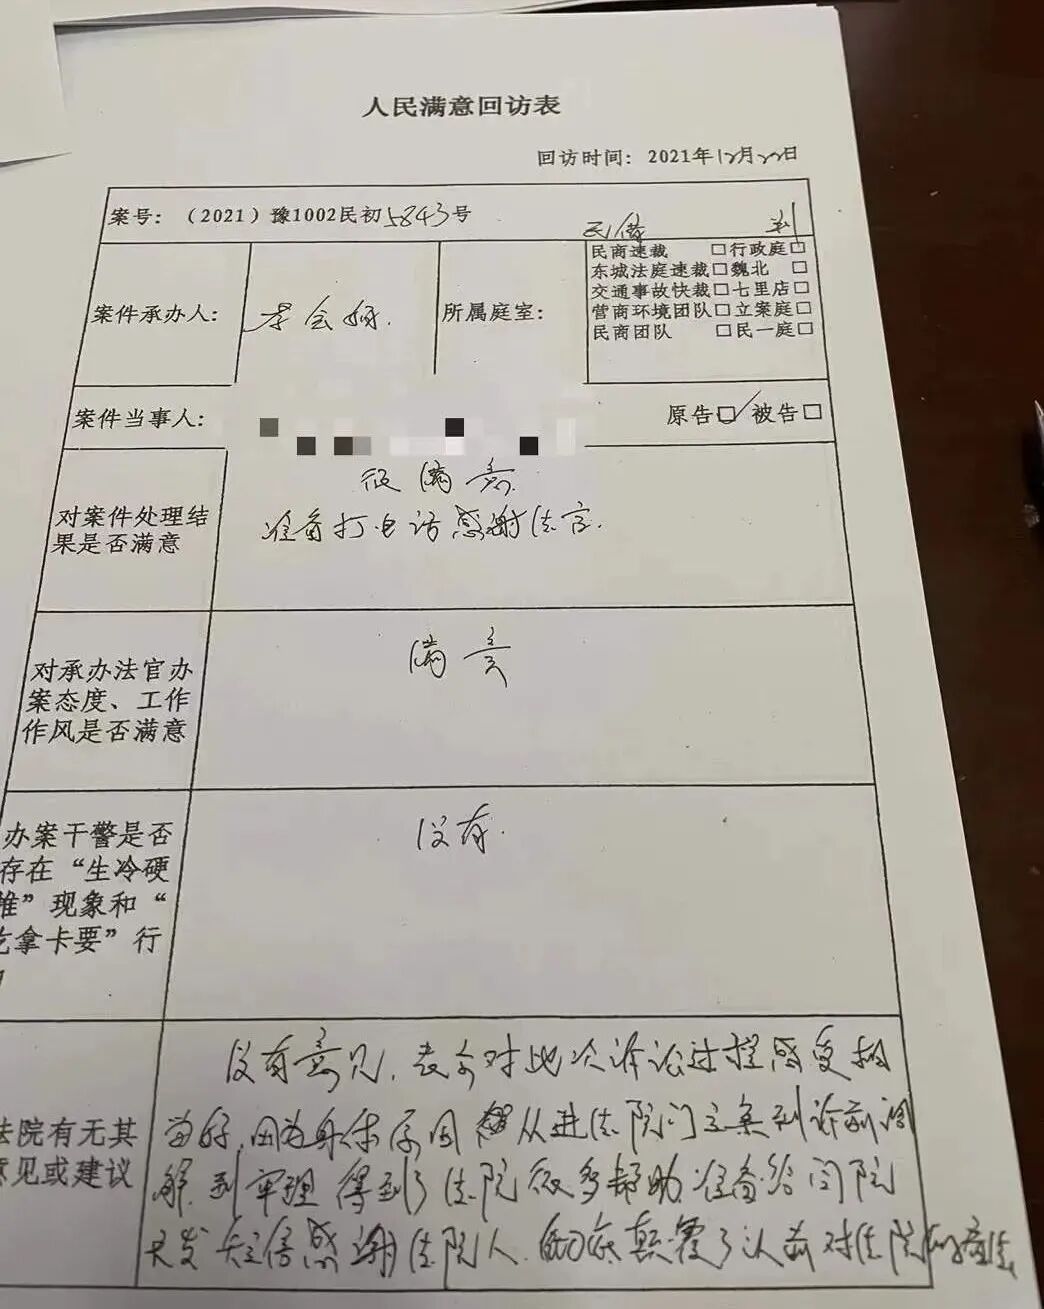 人民满意回访表
回访时间：2021年12月22日
案号：（2021）豫1002民初5843号
民商速裁 □行政庭□
东城法庭速裁□魏北 □
案件承办人： 所属庭室： 交通事故快裁□七里店□
营商环境团队□立案庭□
民商团队 □民一庭□
案件当事人： 原告☑ 被告□
很满意
对案件处理结 准备打电话感谢法官.
果是否满意
满意
对承办法官办
案态度、工作
作风是否满意
办案干警是否 没有.
存在“生冷硬
推”现象和“
吃拿卡要”行
没有意见，表示对此次诉讼过程感受相
法院有无其 当好,因为身体原因 从进法院门立案到诉前调
意见或建议 解到审理得到了法院很多帮助准备给闫院
长发短信感谢法院人. 彻底颠覆了以前对法院的看法